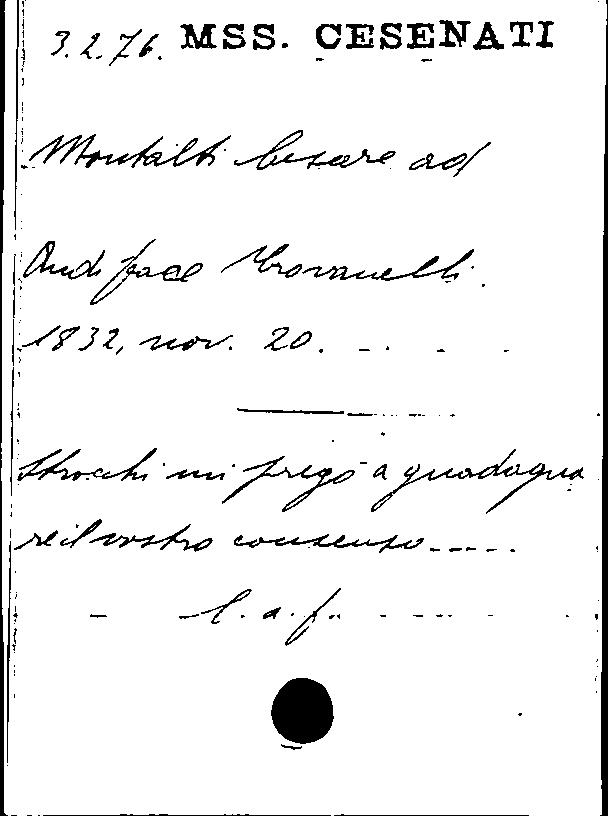 3.2.76. MSS. CESENATI
Montalti Cesare ad
Audiface Trovanelli.
1832, nov. 20. - . - .
Strocchi mi pregò a guadagna
re il vostro consenso.....
l. a. f.